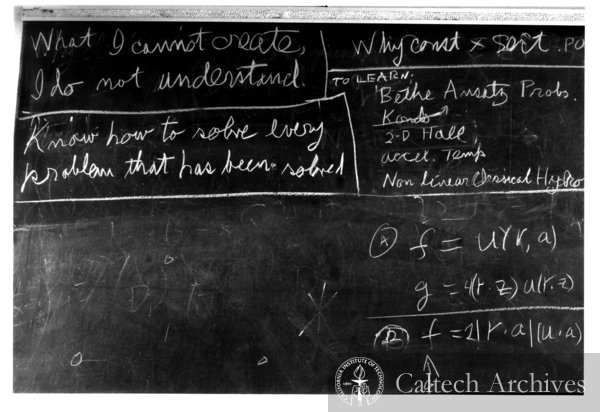 What I cannot create,
I do not understand.
Know how to solve every
problem that has been solved
Why const × sort . PO
TO LEARN:
Bethe Ansatz Probs.
Kondo
2-D Hall
accel. Temp
Non Linear Classical Hydro
Ⓐ f = U(r, a)
g = 4(r·z) u(r.z)
Ⓑ f = 2|r·a|(u·a)
CALIFORNIA INSTITUTE OF TECHNOLOGY
1891
Caltech Archives